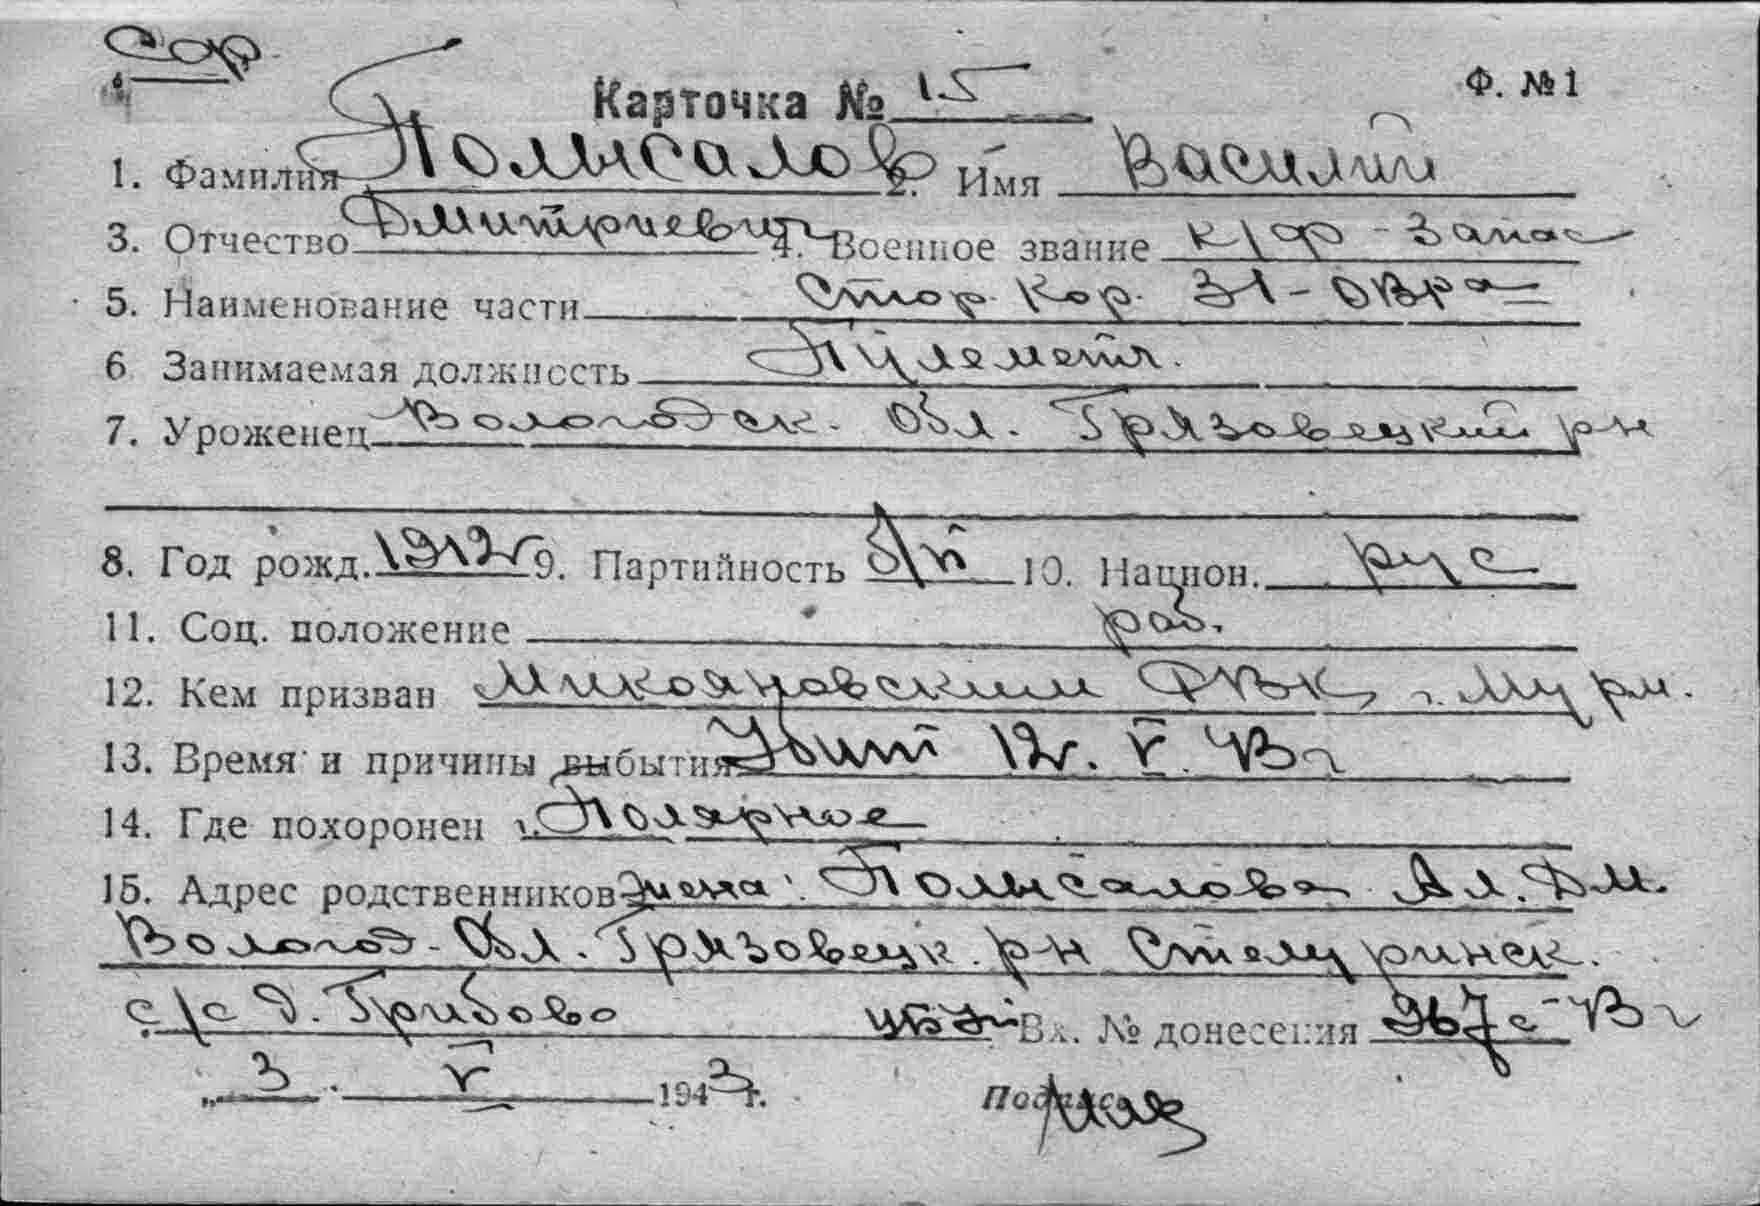 Сар
Карточка № 15 Ф. №1
1. Фамилия Полысалов 2. Имя Василий
3. Отчество Дмитриевич 4. Военное звание к/ф запас
5. Наименование части Стор. Кор. 31-ОВРа
6 Занимаемая должность Пулеметч.
7. Уроженец Вологодск. Обл. Грязовецкий рн
8. Год рожд. 1912г 9. Партийность б/п 10. Национ. рус
11. Соц. положение раб.
12. Кем призван Микояновским РВК, г. Мурм.
13. Время и причины выбытия Убит 12. V. 43 г
14. Где похоронен г. Полярное
15. Адрес родственников Жена: Полысалова Ал. Дм.
Вологод. Обл. Грязовецк. рн Степуринск.
с/с д. Грибово Вх. № донесения 967с-43 г
„3. V 1943 г. Подпись